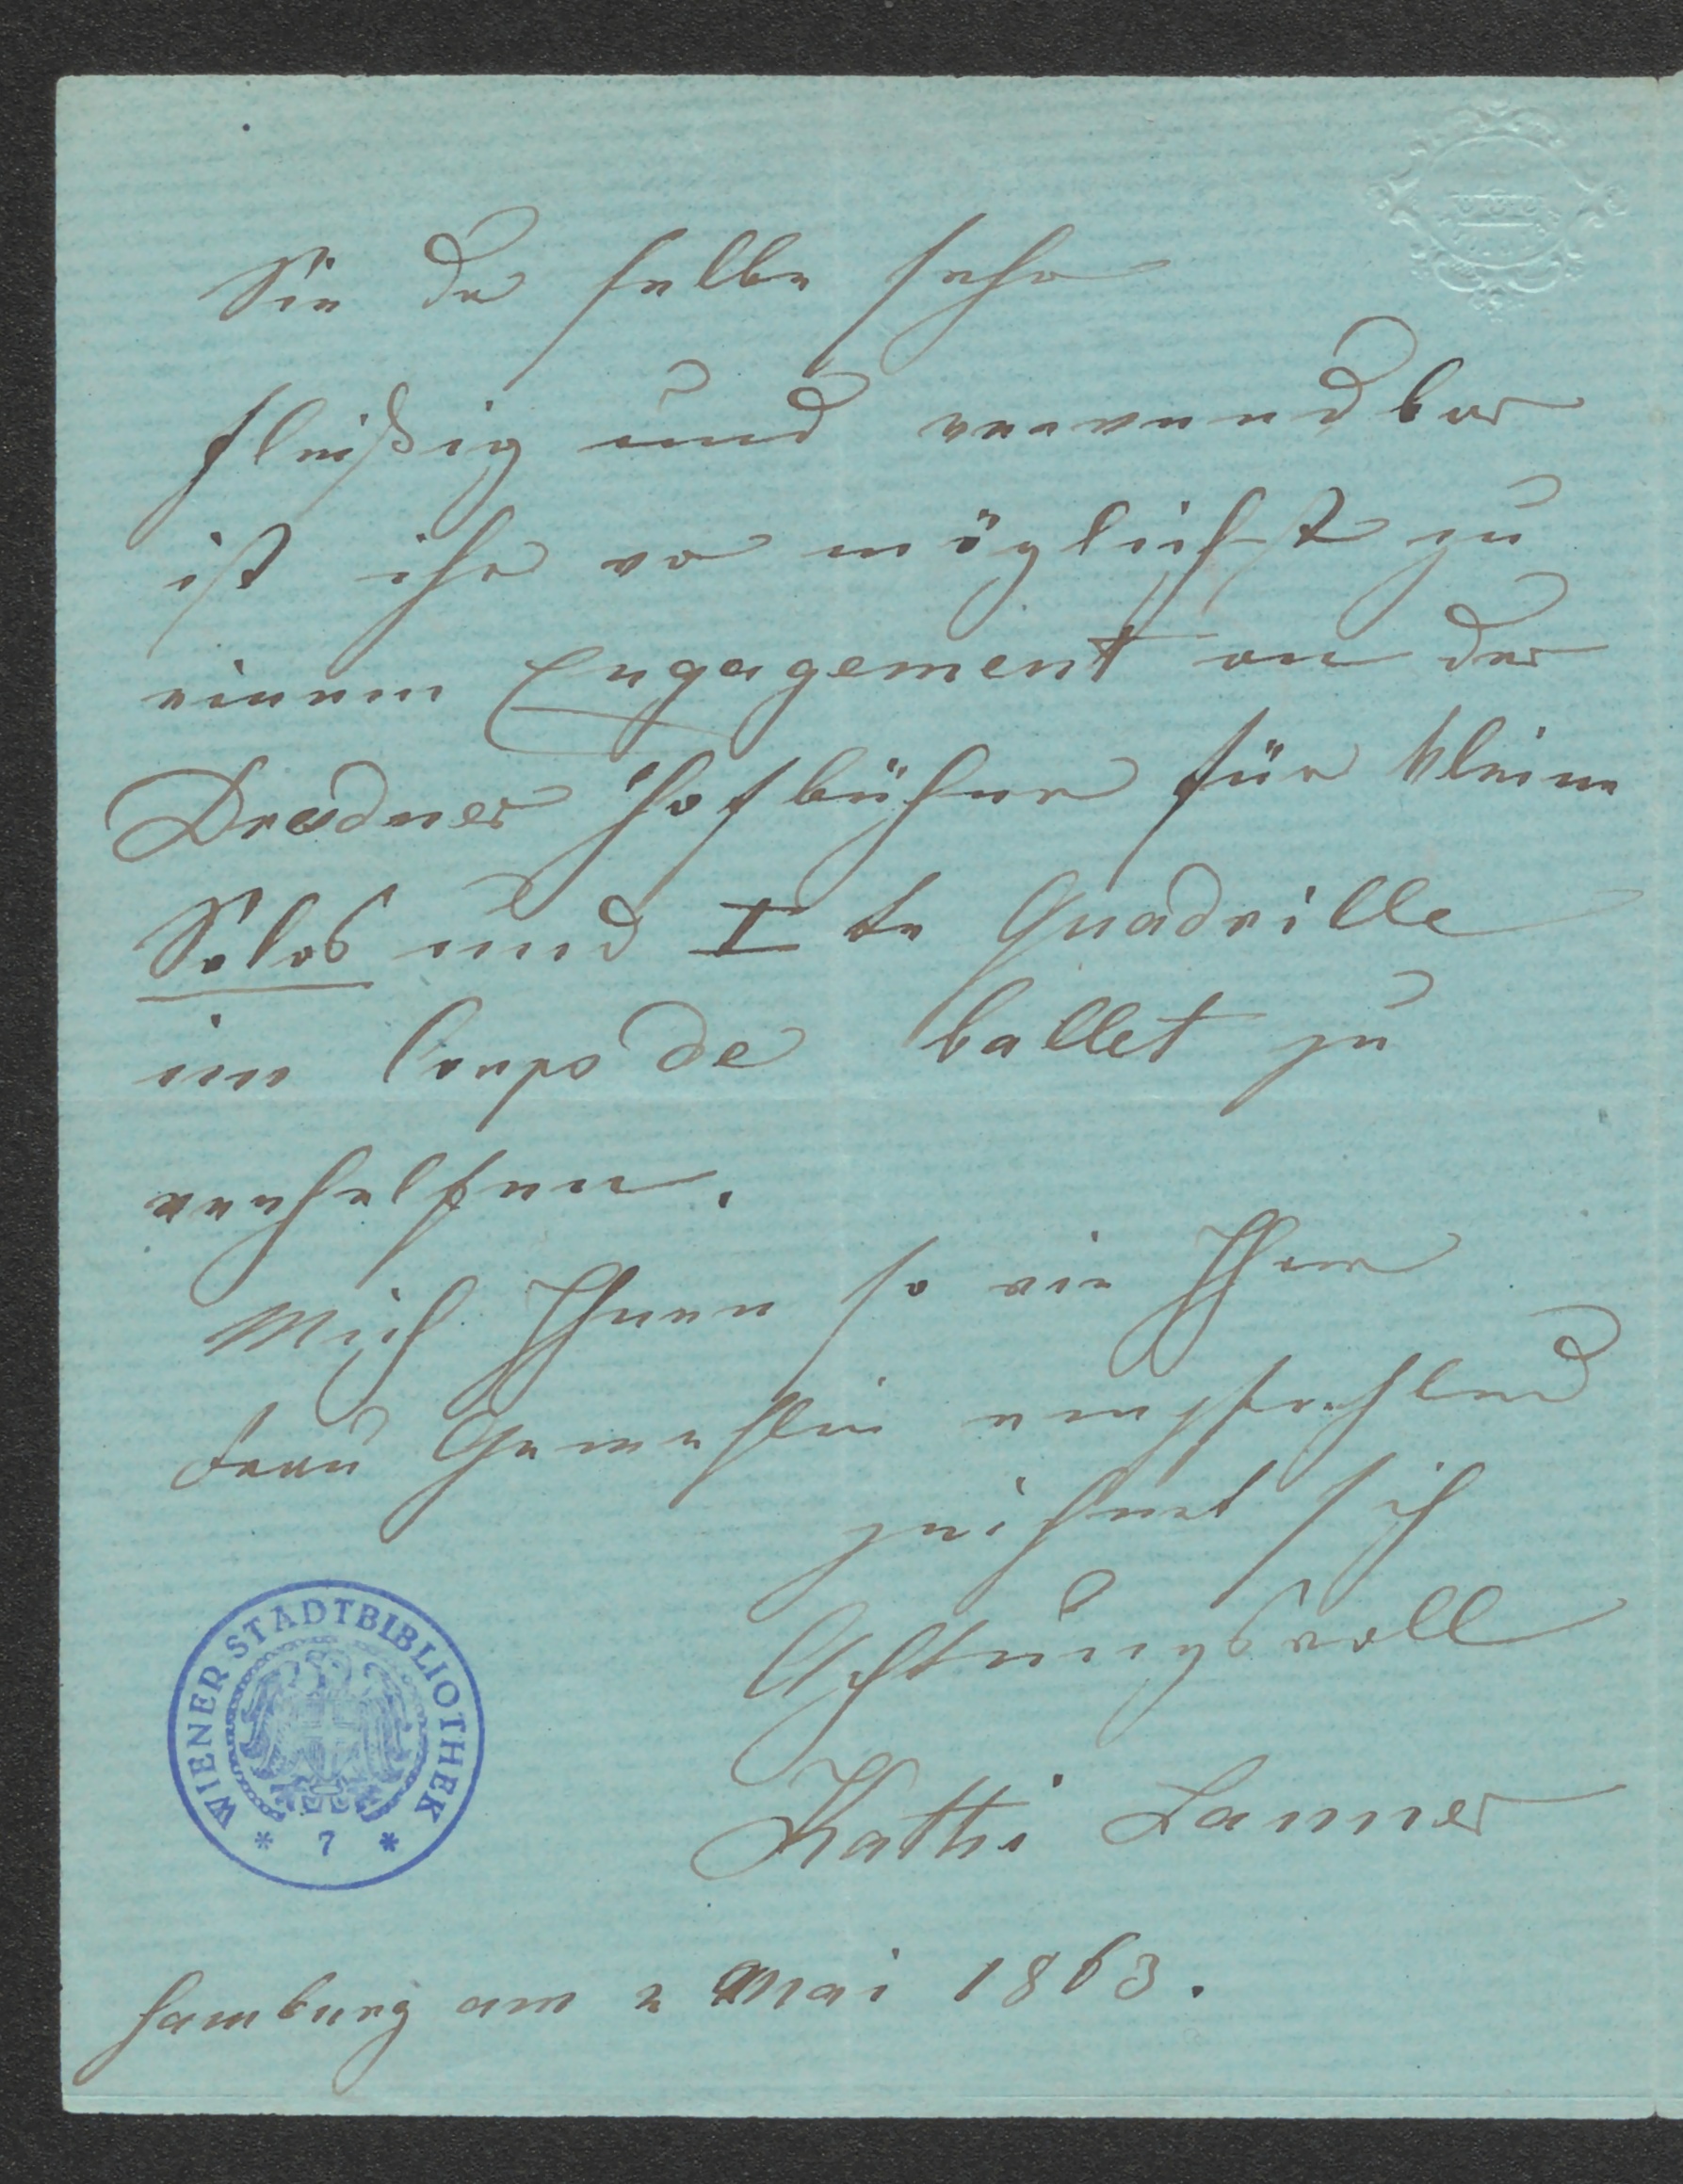 Sie da selbe sehr
fleißig und verwendbar
ist ihr wo möglichst zu
einem Engagement an der
Dresdner Hofbühne für kleine
Solos und I te Quadrille
im Corps de ballet zu
verhelfen.
Mich Ihnen so wie Ihrer
Frau Gemahlin empfehlend
zeichnet sich
Achtungsvoll
Kathi Lanner
Hamburg am 2 Mai 1863.
WIENER STADTBIBLIOTHEK
* 7 *